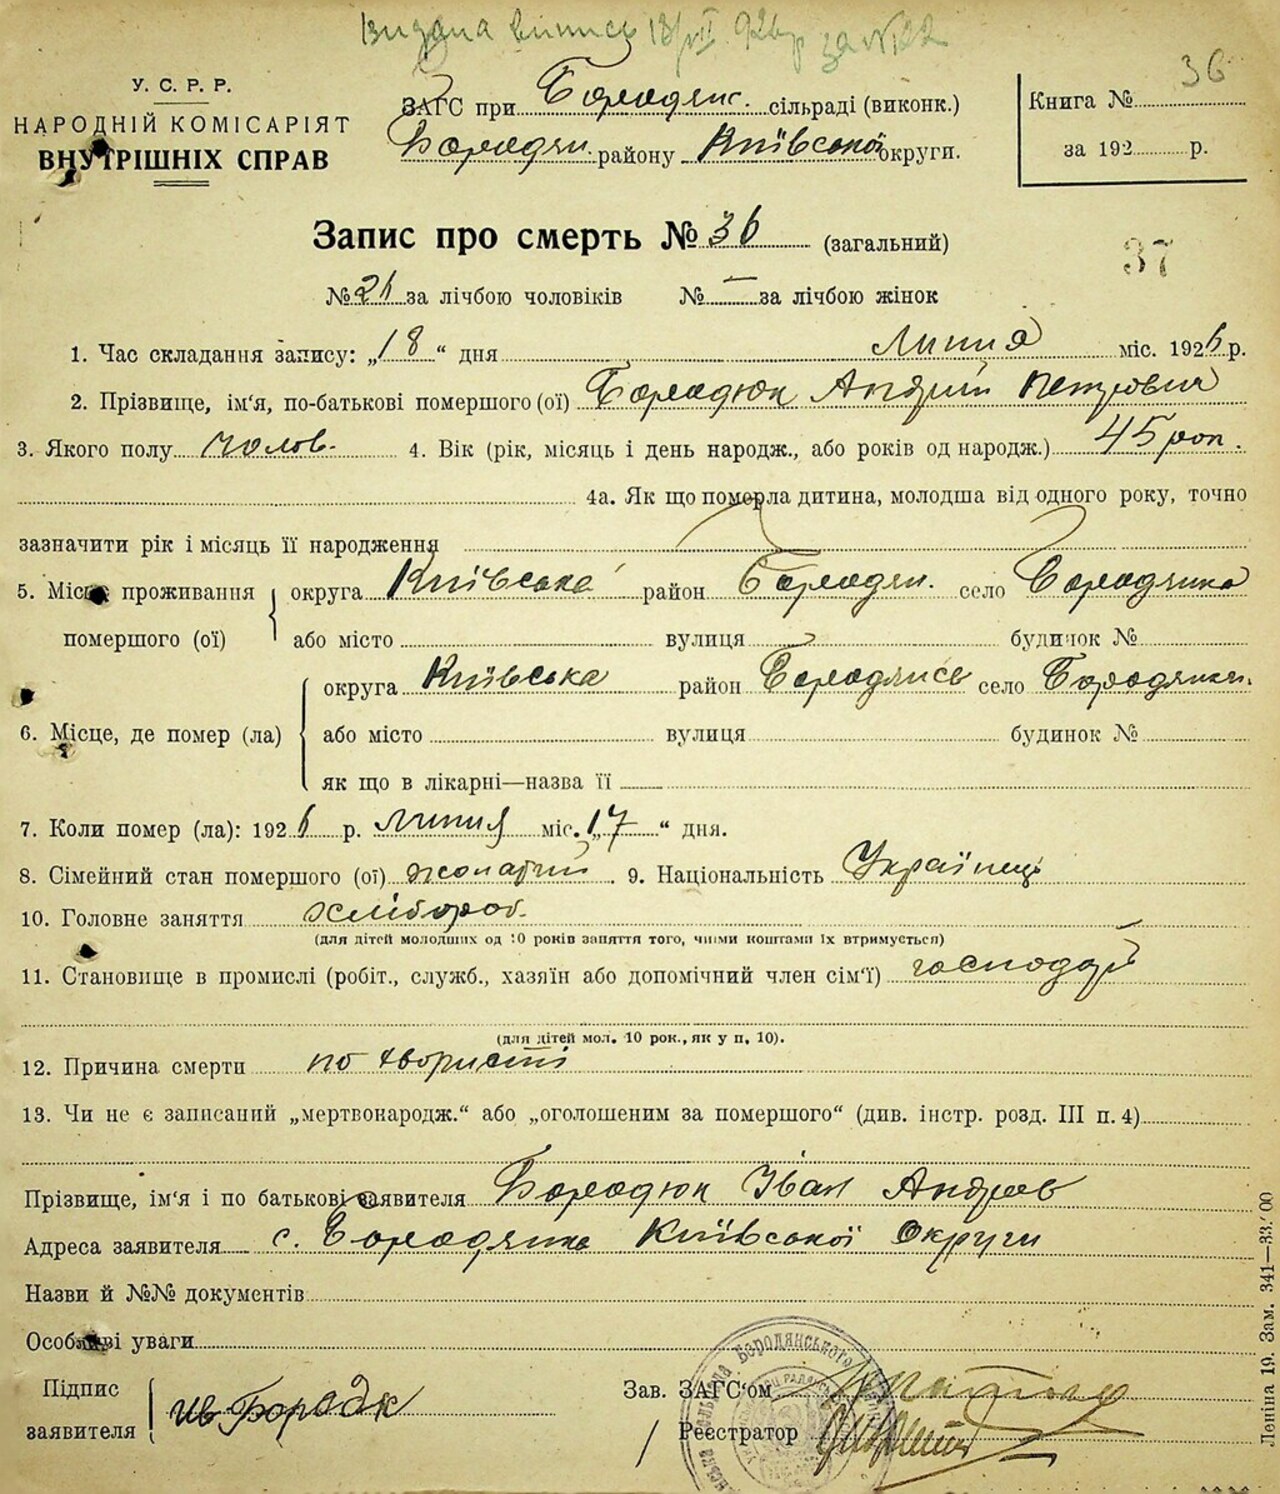 Видана випись 18/VII 926 р за №22
У. С. Р. Р.
НАРОДНІЙ КОМІСАРІЯТ
ВНУТРІШНІХ СПРАВ
ЗАГС при Бородянс. сільраді (виконк.)
Бородян. району Київської округи.
36
Книга №
за 192 р.
Запис про смерть № 36 (загальний)
37
№ 21 за лічбою чоловіків № — за лічбою жінок
1. Час складання запису: „18“ дня Липня міс. 1926 р.
2. Прізвище, ім'я, по-батькові помершого (ої) Бородюк Андрій Петрович
3. Якого полу чолов. 4. Вік (рік, місяць і день народж., або років од народж.) 45 рок.
4а. Як що померла дитина, молодша від одного року, точно
зазначити рік і місяць її народження
5. Місце проживання помершого (ої) округа Київська район Бородян. село Бородянка
або місто вулиця будинок №
6. Місце, де помер (ла) округа Київська район Бородянсь село Бородянка
або місто вулиця будинок №
як що в лікарні—назва її
7. Коли помер (ла): 1926 р. Липня міс. „17“ дня.
8. Сімейний стан помершого (ої) жонатий 9. Національність Українець
10. Головне заняття хлібороб.
(для дітей молодших од 10 років заняття того, чиїми коштами їх втримується)
11. Становище в промислі (робіт., служб., хазяїн або допомічний член сім'ї) господар
(для дітей мол. 10 рок., як у п. 10).
12. Причина смерти по хвористі
13. Чи не є записаний „мертвонародж.“ або „оголошеним за помершого“ (див. інстр. розд. III п. 4)
Прізвище, ім'я і по батькові заявителя Бородюк Іван Андріев
Адреса заявителя с. Бородянка Київської Округи
Назви й №№ документів
Особливі уваги
Підпис заявителя Ив Бородюк
Зав. ЗАГС'ом
Реєстратор
Бородянського
Леніна 19. Зам. 341—33.00